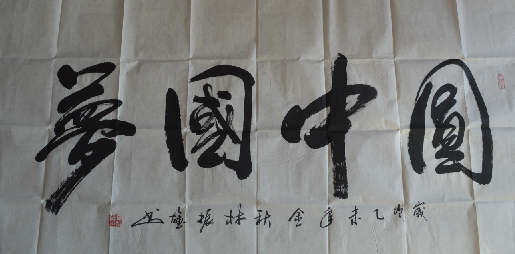 圓中國夢
歲次乙未年金秋林振书